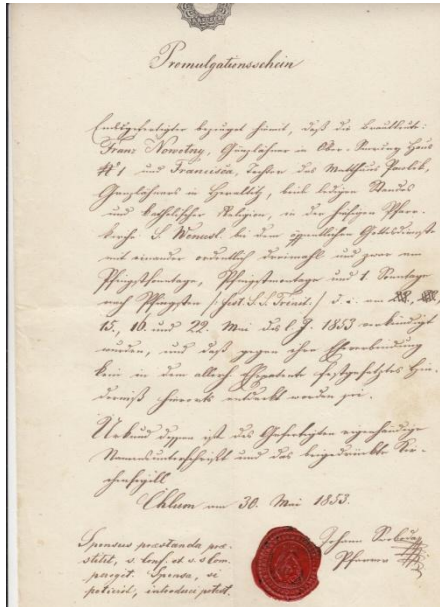 Promulgationsschein
Endesgefertigter bezeuget hiemit, daß die Brautleute:
Franz Nowotny, Ganzlöhner in Ober- Haus
# 1 und Francisca, Tochter des Matthäus Pavlik,
Ganzlöhners in Heraltitz, beide ledigen Standes
und katholischer Religion, in der hiesigen Pfarr-
kirche S. Wencesl. bei dem öffentlichen Gottesdienste
mit einander ordentlich dreimahl und zwar am
Pfingstsonntage, Pfingstmontage und 1. Sonntage
nach Pfingsten /: fest. S.S. Trinit. :/ d. i. am
15., 16. und 22. Mai des l. J. 1853 verkündigt
wurden, und daß gegen ihre Eheverbindung
kein in dem allerh Ehepatente festgesetztes Hin-
derniß hierorts entdeckt worden sei.
Urkund dessen ist des Gefertigten eigenhändige
Namensunterschrift und das beigedrückte Kir-
chensigill.
Chlum am 30. Mai 1853.
Sponsus praestanda prae-
stitit, s. conf. et s. s. com.
peregit. Sponsa, si
petierit, introduci potest.
Johann Swoboda
Pfarrer